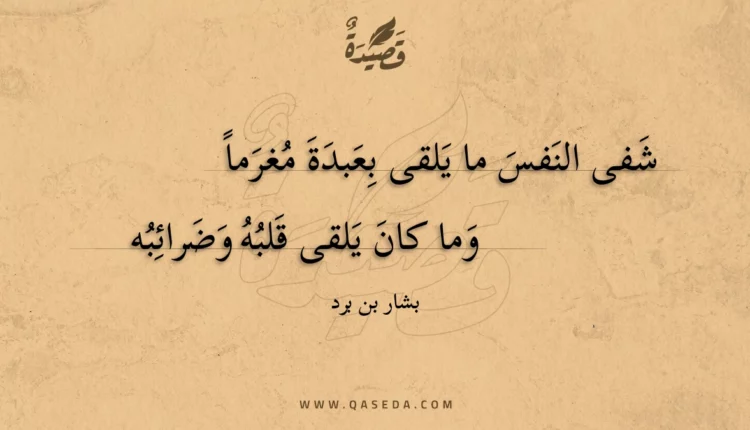 قَصِيْدَةٌ
شَفى النَفسَ ما يَلقى بِعَبدَةَ مُغرَماً
وَما كانَ يَلقى قَلبُهُ وَضَرائِبُه
بشار بن برد
WWW.QASEDA.COM